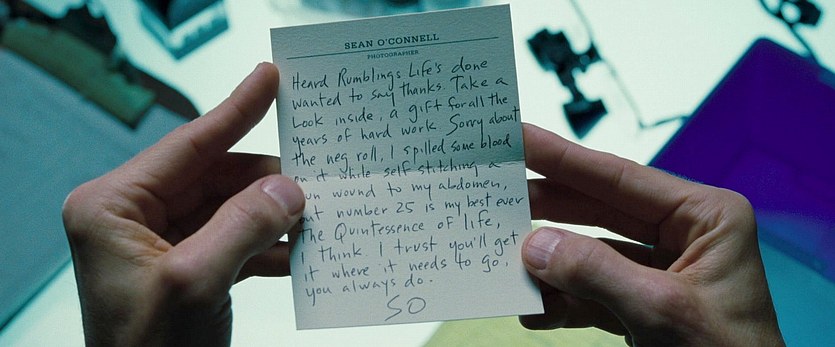 SEAN O'CONNELL
PHOTOGRAPHER
Heard Rumblings Life's done
wanted to say thanks. Take a
Look inside, a gift for all the
years of hard work. Sorry about
the neg roll, I spilled some blood
on it while self stitching a
wound to my abdomen,
number 25 is my best ever
The Quintessence of life,
I think. I trust you'll get
it where it needs to go,
you always do.
SO